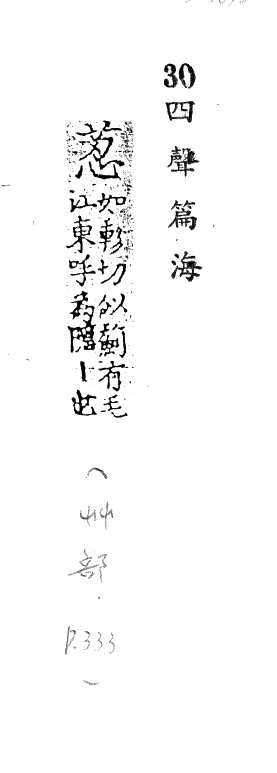 30四聲篇海
荵
如軫切似薊有毛
江東呼為隱丨也
(艸部.P.333)